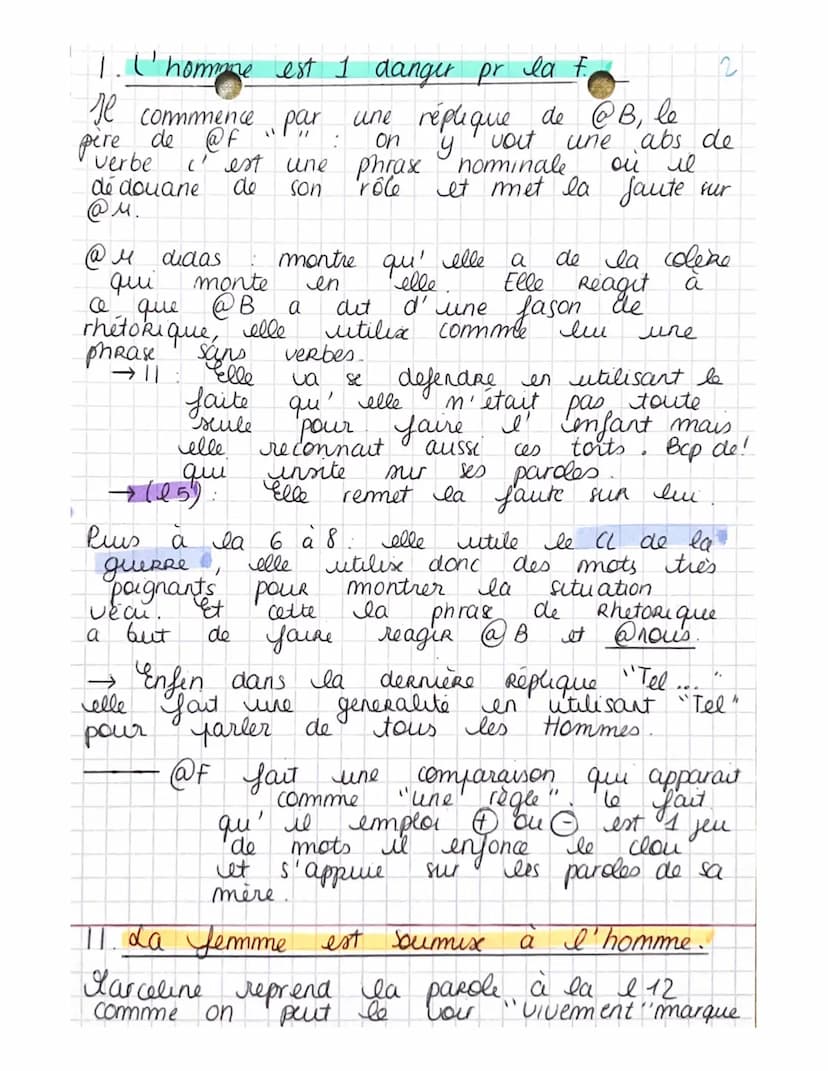 I. L'homme est 1 danger pr la f. 2
Il commence par une réplique de @B, le
père de @F " " : on y voit une abs de
verbe c'est une phrase nominale où il
dédouane de son rôle et met la faute sur
@M.
@M didas : montre qu'elle a de la colère
qui monte en elle. Elle réagit à
ce que @B a dit d'une fason de
rhétorique, elle utilise comme lui une
phrase sans verbes.
→ 11 : Elle va se defendre en utilisant le
faite qu'elle n'était pas toute
seule pour faire l'enfant mais
elle reconnait aussi ces torts. Bcp de !
qui insite sur ses paroles.
→ (l5) : Elle remet la faute sur lui.
Puis à la 6 à 8 : elle utile le CL de la
guerre, elle utilise donc des mots très
poignants pour montrer la situation
vécu. Et cette la phrase de rhetorique
a but de faire reagir @B et @nous.
→ Enfin dans la dernière réplique "Tel ... "
elle fait une generalité en utilisant "Tel"
pour parler de tous les Hommes.
—— @F fait une comparaison qui apparait
comme "une règle". le fait
qu'il emploi ⊕ ou ⊖ est 1 jeu
de mots il enfonce le clou
et s'appuie sur les paroles de sa
mère.
II. La femme est soumise à l'homme.
Marceline reprend la parole à la l 12
comme on peut le voir "vivement" marque